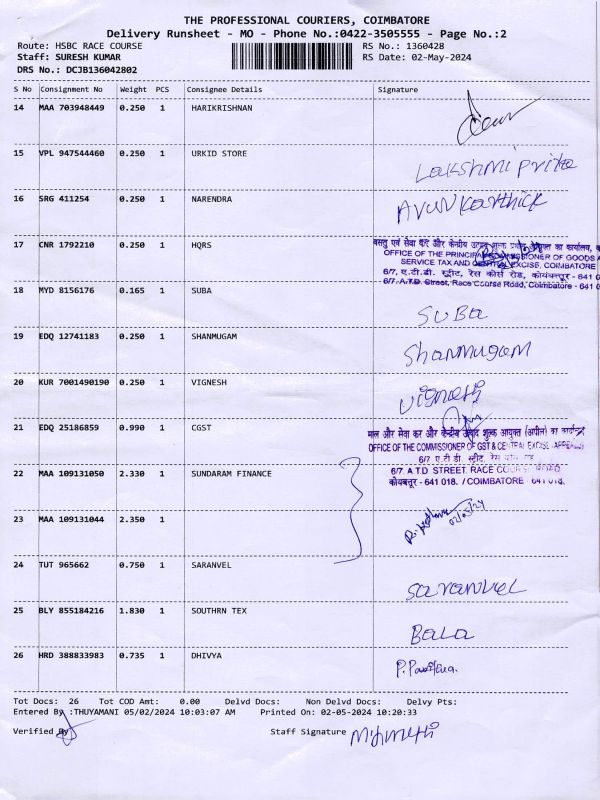 THE PROFESSIONAL COURIERS, COIMBATORE
Delivery Runsheet - MO - Phone No.:0422-3505555 - Page No.:2
Route: HSBC RACE COURSE RS No.: 1360428
Staff: SURESH KUMAR RS Date: 02-May-2024
DRS No.: DCJB136042802
S No Consignment No Weight PCS Consignee Details Signature
14 MAA 703948449 0.250 1 HARIKRISHNAN
15 VPL 947544460 0.250 1 URKID STORE
Lakshmi Priya
16 SRG 411254 0.250 1 NARENDRA
Arun Karthick
17 CNR 1792210 0.250 1 HQRS
वस्तु एवं सेवा कर और केन्द्रीय उत्पाद शुल्क का कार्यालय,
OFFICE OF THE PRINCIPAL COMMISSIONER OF GOODS
SERVICE TAX AND CENTRAL EXCISE, COIMBATORE
6/7, ए.टी.डी. स्ट्रीट, रेस कोर्स रोड, कोयम्बत्तूर - 641 0
6/7, A.T.D. Street, Race Course Road, Coimbatore - 641 0
18 MYD 8156176 0.165 1 SUBA
SUBa
19 EDQ 12741183 0.250 1 SHANMUGAM
Shanmugam
20 KUR 7001490190 0.250 1 VIGNESH
Vignesh
21 EDQ 25186859 0.990 1 CGST
माल और सेवा कर और केन्द्रीय उत्पाद शुल्क आयुक्त (अपील) का कार्यालय
OFFICE OF THE COMMISSIONER OF GST & CENTRAL EXCISE (APPEALS)
6/7 ए टी डी. स्ट्रीट, रेस कोर्स रोड
22 MAA 109131050 2.330 1 SUNDARAM FINANCE
6/7. A.T.D STREET, RACE COURSE ROAD
कोयम्बत्तूर - 641 018. / COIMBATORE - 641 018.
23 MAA 109131044 2.350 1
02/05/24
24 TUT 965662 0.750 1 SARANVEL
Saranvel
25 BLY 855184216 1.830 1 SOUTHRN TEX
Bala
26 HRD 388833983 0.735 1 DHIVYA
Tot Docs: 26 Tot COD Amt: 0.00 Delvd Docs: Non Delvd Docs: Delvy Pts:
Entered By :THUYAMANI 05/02/2024 10:03:07 AM Printed On: 02-05-2024 10:20:33
Verified By Staff Signature